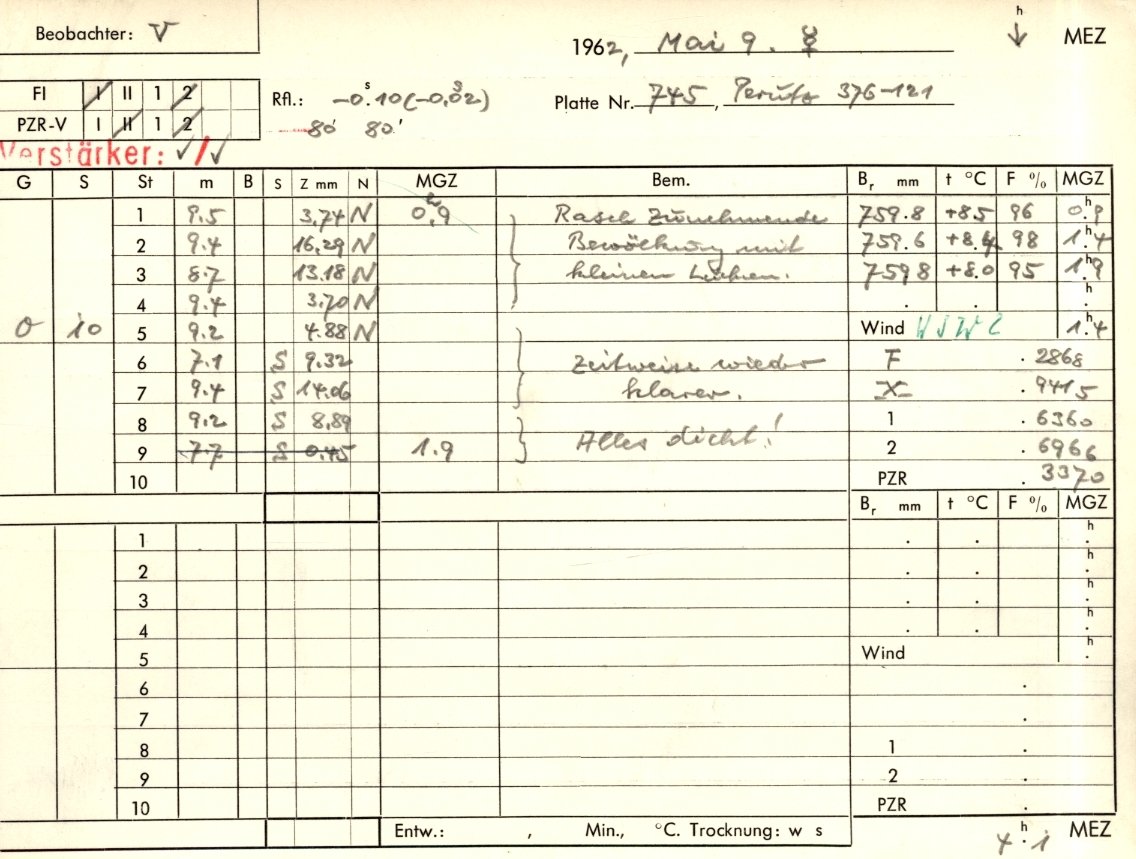 Beobachter: V
1962, Mai 9. ☿
h
↓ MEZ
FI I II 1 2
PZR-V I II 1 2
Rfl.: -0.ˢ10(-0.ˢ02)
80' 80'
Platte Nr. 745, Perutz 376-121
Verstärker: ✓/✓
G S St m B S Z mm N MGZ Bem. Bᵣ mm t °C F % MGZ
1 9.5 3.74 N 0.ʰ9 Rasch Zunehmende 759.8 +8.5 96 0.ʰ9
2 9.4 16.29 N Bewölkung mit 759.6 +8.4 98 1.ʰ4
3 8.7 13.18 N kleinen Lücken. 759.8 +8.0 95 1.ʰ9
4 9.4 3.70 N . . h .
0 10 5 9.2 4.88 N Wind WSW 2 1.ʰ4
6 7.1 S 9.32 Zeitweise wieder F .2868
7 9.4 S 14.06 klarer. X .9415
8 9.2 S 8.89 Alles dicht! 1 .6360
9 7.7 S 0.45 1.9 2 .6966
10 PZR .3370
Bᵣ mm t °C F % MGZ
1 . . h .
2 . . h .
3 . . h .
4 . . h .
5 Wind h .
6 .
7 .
8 1 .
9 2 .
10 PZR .
Entw.: , Min., °C. Trocknung: w s
4.ʰ1 MEZ